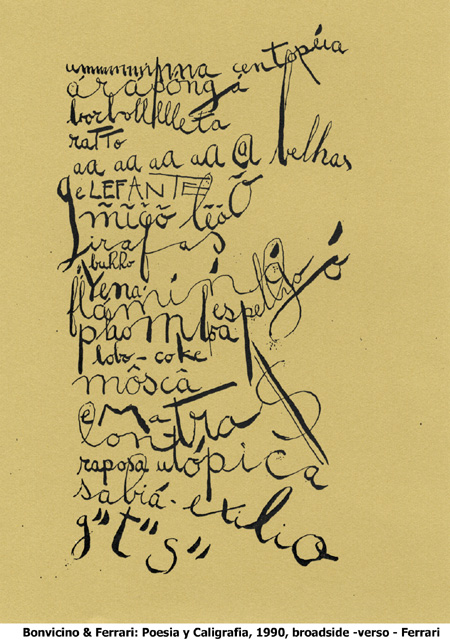 ummmmmmma centopéia
árapongá
borbolllllleta
ratto
aa aa aa aa @ belhas
e LEFANTE
m̃ĩg̃õ lẽãõ
girafas
burro
flamingó
espelho
pombo
lobo-coke
môscâ
e Matra
lontra
raposa utópica
sabiá-exilio
g"t"s"
Bonvicino & Ferrari: Poesia y Caligrafia, 1990, broadside -verso - Ferrari